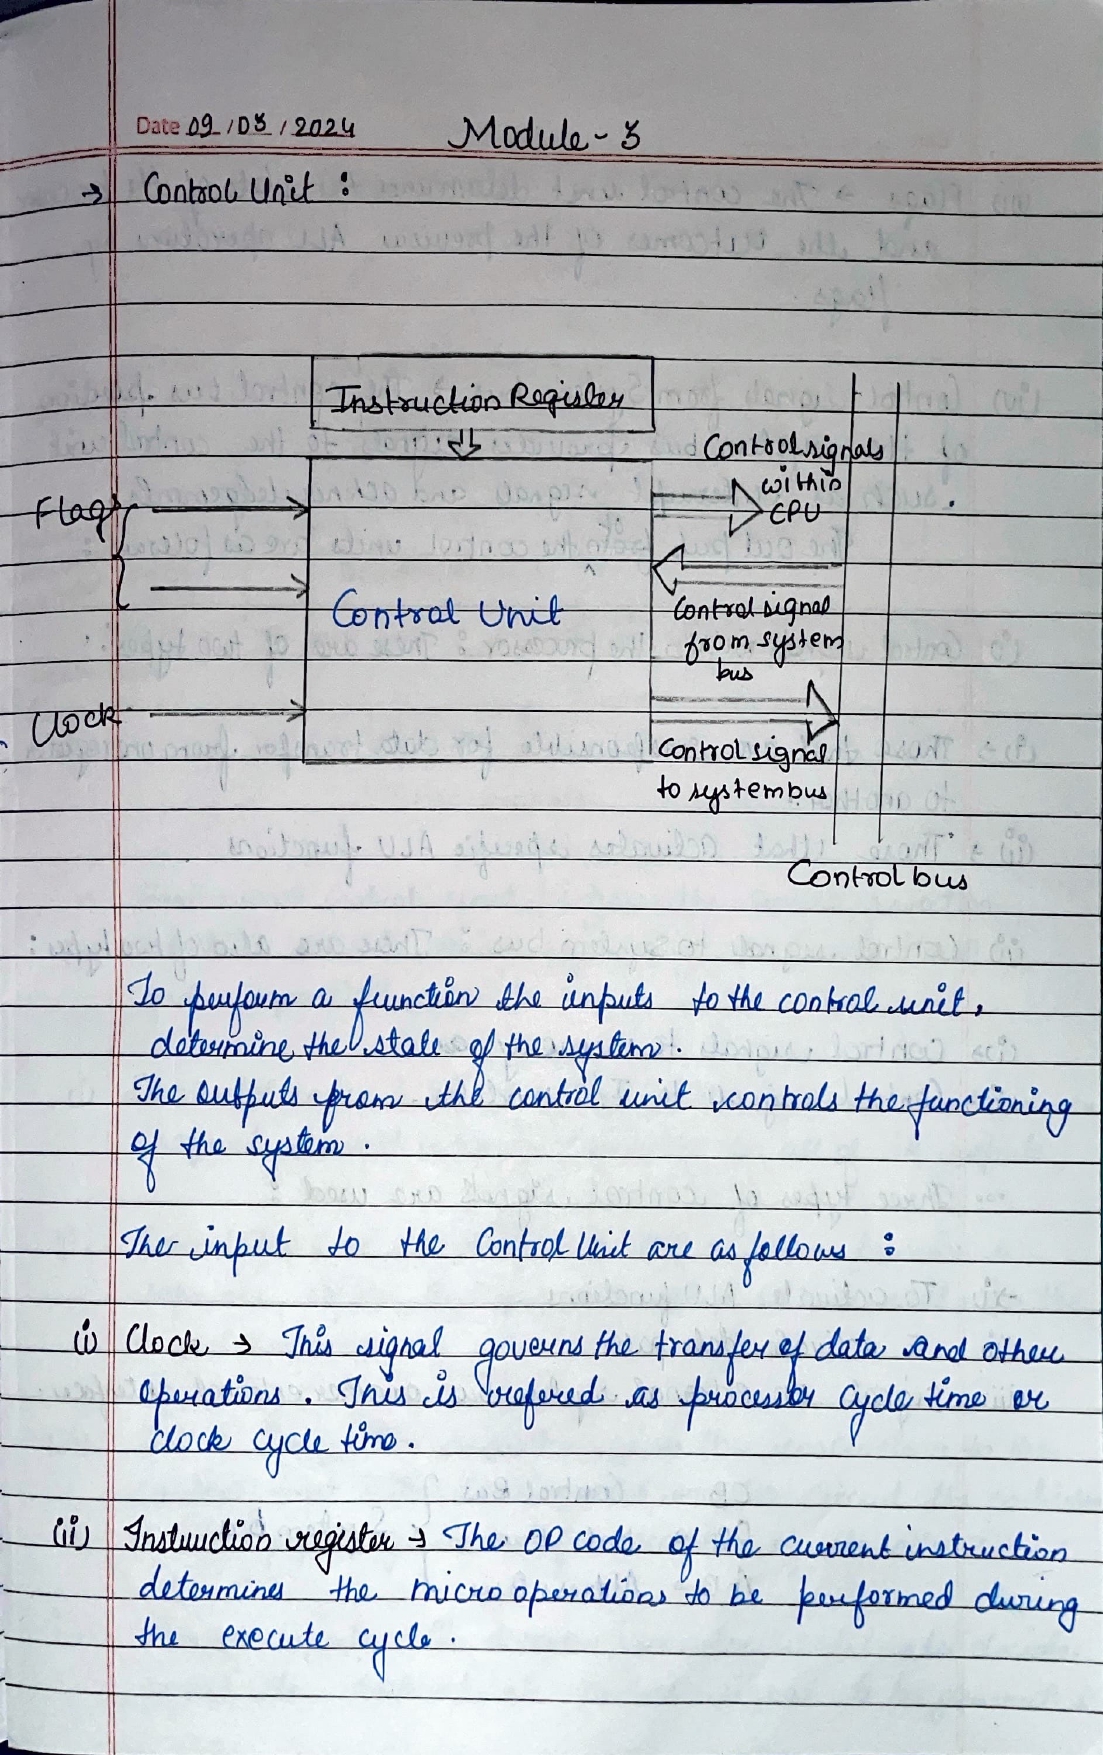 Date 09/03/2024 Module-3
→ Control Unit :
Instruction Register
Control signals
within
CPU
Flags
Control Unit
Control signal
from system
bus
Clock
Control signal
to system bus
Control bus
To perform a function the inputs to the control unit,
determine the state of the system.
The outputs from the control unit controls the functioning
of the system.
The input to the Control Unit are as follows :
(i) Clock → This signal governs the transfer of data and other
operations. This is refered as processor cycle time or
clock cycle time.
(ii) Instruction register → The OP code of the current instruction
determines the micro operations to be performed during
the execute cycle.